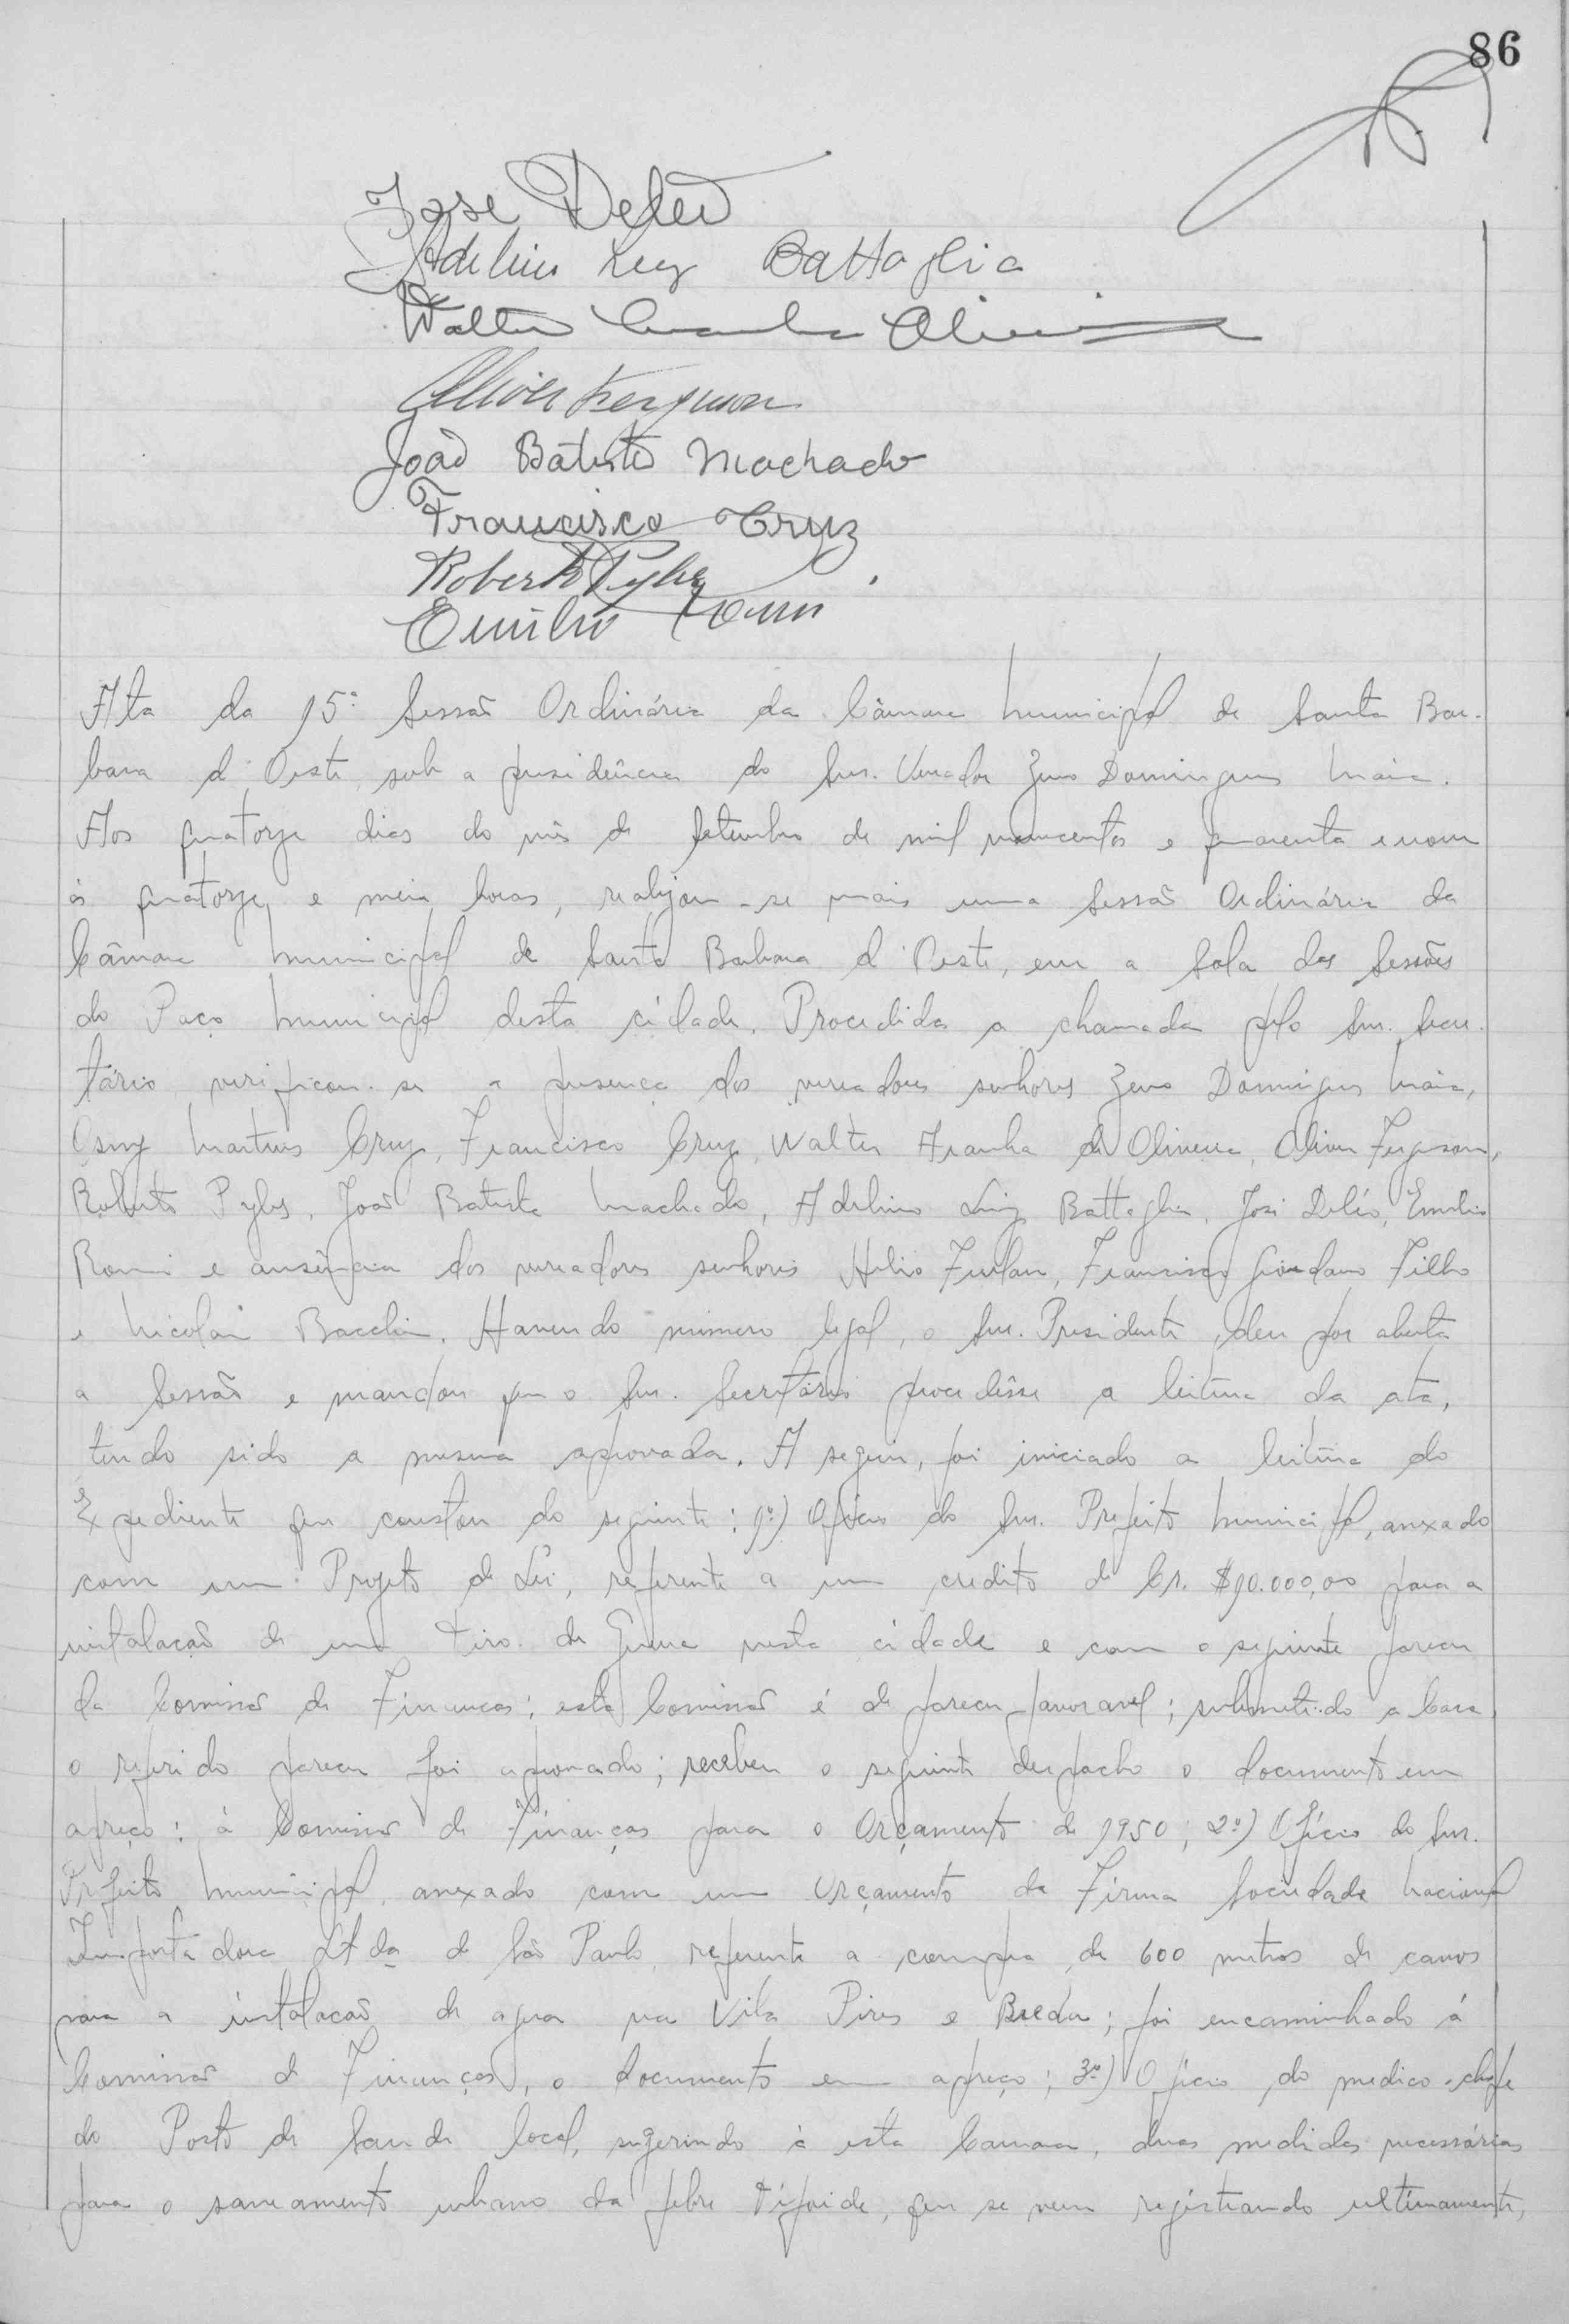 86
José Deleo
Adelino Luiz Battaglia
Walter Aranha Oliveira
Oliver Ferguson
João Batista Machado
Francisco Cruz
Roberto Pyles
Emilio Romi
Ata da 15ª Sessão Ordinária da Câmara Municipal de Santa Bar-
bara d'Oeste, sob a presidência do Snr. Vereador Zeno Domingues Maia.
Aos quatorze dias do mês de Setembro de mil novecentos e quarenta e nove
ás quatorze e meia horas, realizou-se mais uma Sessão Ordinária da
Câmara Municipal de Santa Barbara d'Oeste, em a Sala das Sessões
do Paço Municipal desta cidade. Procedida a chamada pelo Snr. Secre-
tário verificou-se a presença dos vereadores senhores Zeno Domingues Maia,
Osny Martins Cruz, Francisco Cruz, Walter Aranha de Oliveira, Oliver Ferguson,
Roberto Pyles, João Batista Machado, Adelino Luiz Battaglia, José Deléo, Emilio
Romi e ausência dos vereadores senhores Helio Furlan, Francisco Giordano Filho
e Nicolau Bacchin. Havendo numero legal, o Snr. Presidente, deu por aberta
a Sessão e mandou que o Snr. Secretário procedêsse a leitura da ata,
tendo sido a mesma aprovada. A seguir, foi iniciado a leitura do
Expediente que constou do seguinte: 1º) Ofício do Snr. Prefeito Municipal, anexado
com um Projeto de Lei, referente a um credito de Cr. $10.000,00 para a
instalação de um Tiro de Guerra nesta cidade e com o seguinte parecer
da Comissão de Finanças: esta Comissão é de parecer favoravel; submetido a Casa,
o referido parecer foi aprovado; recebeu o seguinte despacho o documento em
apreço: á Comissão de Finanças para o Orçamento de 1950; 2º) Ofício do Snr.
Prefeito Municipal, anexado com um Orçamento da Firma Sociedade Nacional
Importadora Ltda de São Paulo, referente a compra de 600 metros de canos
para a instalação de agua na Vila Pires e Breda; foi encaminhado á
Comissão de Finanças, o documento em apreço; 3º) Ofício do medico-chefe
do Posto de Saude local, sugerindo á esta Camara, duas medidas necessárias
para o saneamento urbano da febre tífoide, que se vem registrando ultimamente,